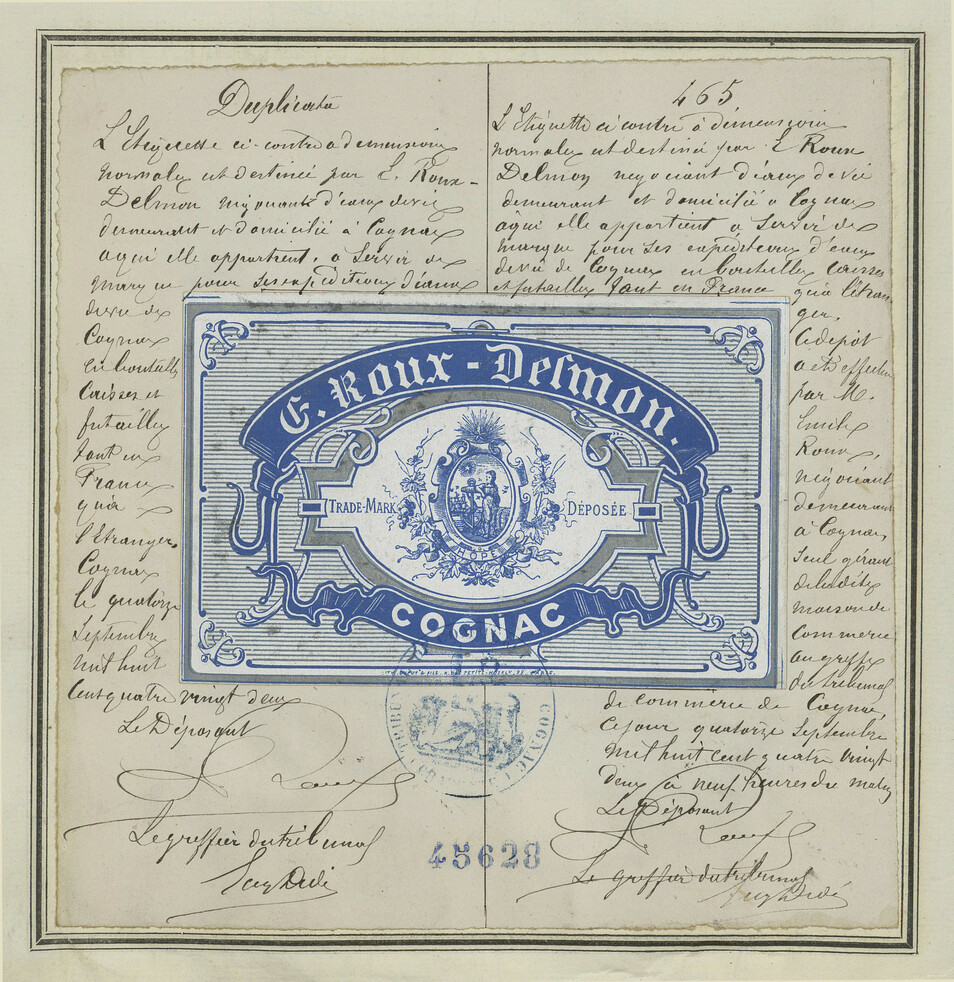 Duplicata
L'Etiquette ci-contre a dimensions
normales est destinée par E. Roux-
Delmon négociant d'eaux de vie
demeurant et domicilié à Cognac
aqui elle appartient, a servir de
marque pour ses expéditions d'eaux
de vie de
Cognac
en bouteilles
Caisses et
futailles
tant en
France
qu'à
l'Etranger,
Cognac
le quatorze
Septembre
mil huit
cent quatre vingt deux
Le Déposant
Roux
Le greffier du tribunal
465
L'Etiquette ci contre à dimensions
normales est destiné par E Roux
Delmon negociant d'eaux de vie
demeurant et domicilié a Cognac
aqui elle appartient a servir de
marque pour ses expéditions d'eaux
de vie de Cognac en bouteilles caisses
et futailles tant en France qu'a l'étran
ger,
Ce dépôt
a été effectué
par M.
Emile
Roux,
négociant
demeurant
à Cognac
seul gérant
de la dite
maison de
Commerce
au greffe
du tribunal
de commerce de Cognac,
Cejour quatorze Septembre
mil huit cent quatre vingt
deux à neuf heures du matin
Le Déposant
Roux
Le greffier du tribunal
E. Roux-Delmon.
TRADE-MARK
DÉPOSÉE
HOPE
COGNAC
TRIBUNAL
COGNAC
45628